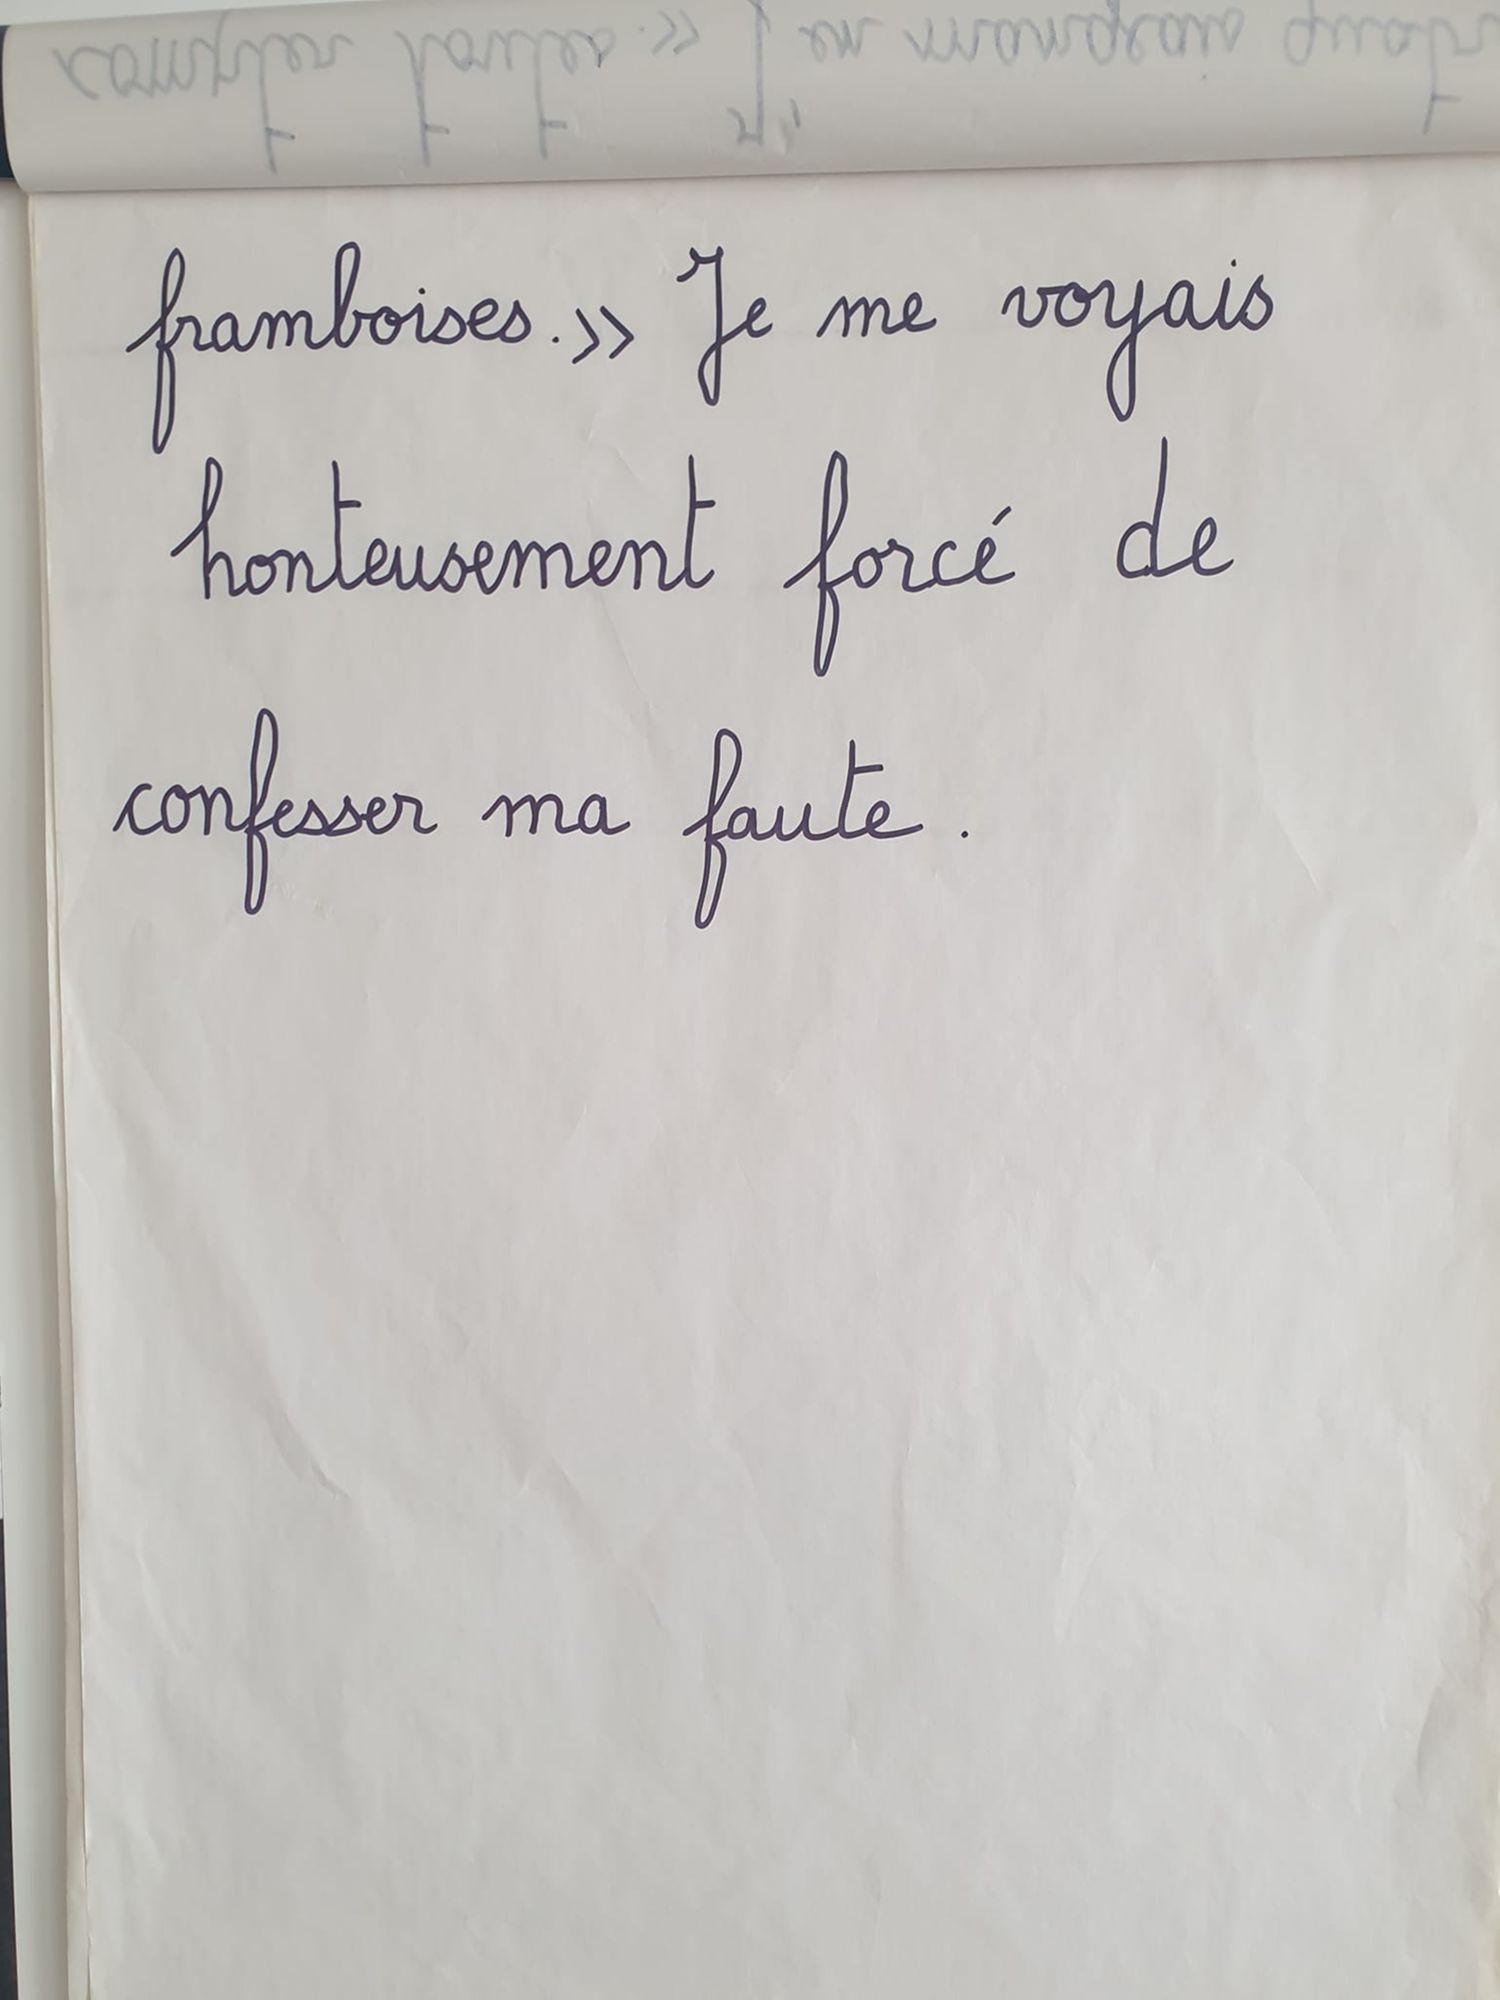 framboises.» Je me voyais
honteusement forcé de
confesser ma faute.